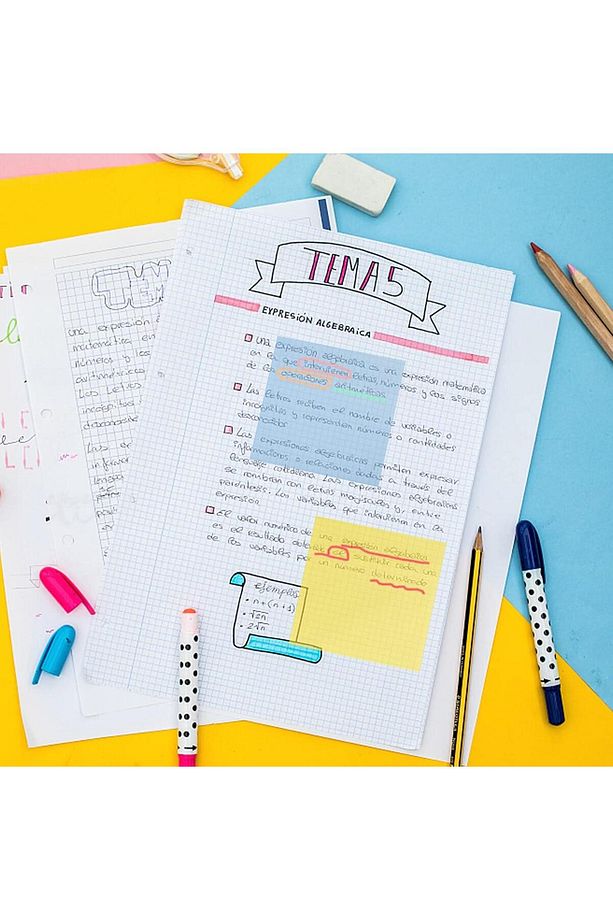 TEMA 5
EXPRESIÓN ALGEBRAICA
Una expresión algebraica es una expresión matemática
en la que intervienen letras, números y los signos
de las operaciones aritméticas.
Las letras reciben el nombre de variables o
incógnitas y representan números o cantidades
desconocidas
Las expresiones algebraicas permiten expresar
informaciones o relaciones dadas a través del
lenguaje cotidiano. Las expresiones algebraicas
se nombran con letras mayúsculas y, entre
paréntesis, las variables que intervienen en la
expresión.
El valor numérico de una expresión algebraica
es el resultado de sustituir cada una
de las variables por un número determinado
ejemplos
• n+(n+1)
• √2n
• 2√n
una expresión
matemática en
números y los
Las letras